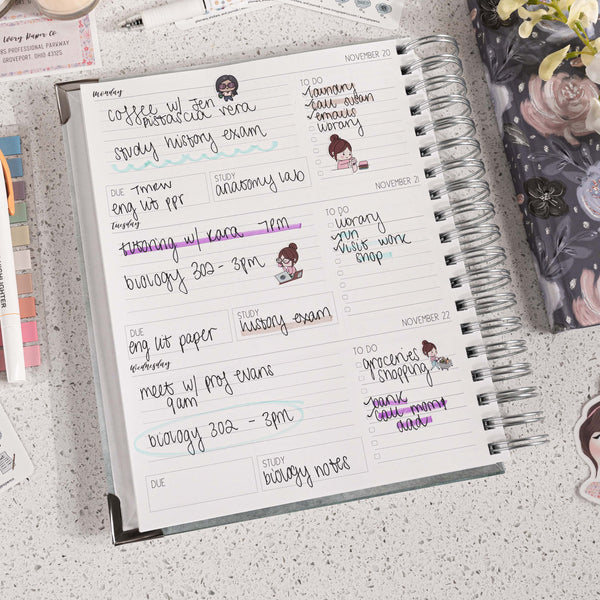 Ivory Paper Co
PROFESSIONAL PARKWAY
GROVEPORT, OHIO 43125
Monday
NOVEMBER 20
coffee w/ Jen
pistascia vera
study history exam
DUE
Tmrw
eng lit ppr
STUDY
anatomy lab
TO DO
laundry
call susan
emails
library
Tuesday
NOVEMBER 21
tutoring w/ kara 7pm
biology 302 - 3pm
DUE
eng lit paper
STUDY
history exam
TO DO
library
run
visit work
shop
Wednesday
NOVEMBER 22
meet w/ prof evans
9am
biology 302 - 3pm
DUE
STUDY
biology notes
TO DO
groceries
shopping
bank
call mom+
dad
HIGHLIGHTER